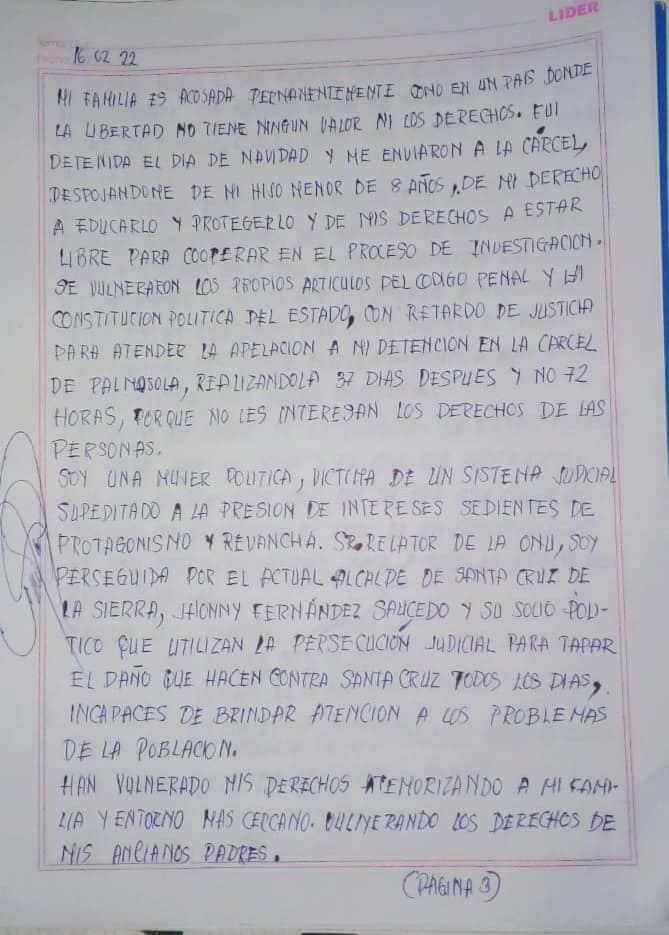 LIDER
16 02 22
MI FAMILIA ES ACOSADA PERMANENTEMENTE COMO EN UN PAIS DONDE
LA LIBERTAD NO TIENE NINGUN VALOR NI LOS DERECHOS. FUI
DETENIDA EL DIA DE NAVIDAD Y ME ENVIARON A LA CÁRCEL,
DESPOJANDOME DE MI HIJO MENOR DE 8 AÑOS, DE MI DERECHO
A EDUCARLO Y PROTEGERLO Y DE MIS DERECHOS A ESTAR
LIBRE PARA COOPERAR EN EL PROCESO DE INVESTIGACION.
SE VULNERARON LOS PROPIOS ARTICULOS DEL CODIGO PENAL Y LA
CONSTITUCION POLITICA DEL ESTADO, CON RETARDO DE JUSTICIA
PARA ATENDER LA APELACION A MI DETENCION EN LA CARCEL
DE PALMASOLA, REALIZANDOLA 37 DIAS DESPUES Y NO 72
HORAS, PORQUE NO LES INTERESAN LOS DERECHOS DE LAS
PERSONAS.
SOY UNA MUJER POLITICA, VICTIMA DE UN SISTEMA JUDICIAL
SUPEDITADO A LA PRESION DE INTERESES SEDIENTES DE
PROTAGONISMO Y REVANCHA. SR. RELATOR DE LA ONU, SOY
PERSEGUIDA POR EL ACTUAL ALCALDE DE SANTA CRUZ DE
LA SIERRA, JHONNY FERNÁNDEZ SAUCEDO Y SU SOCIO POLI-
TICO QUE UTILIZAN LA PERSECUCIÓN JUDICIAL PARA TAPAR
EL DAÑO QUE HACEN CONTRA SANTA CRUZ TODOS LOS DIAS,
INCAPACES DE BRINDAR ATENCION A LOS PROBLEMAS
DE LA POBLACION.
HAN VULNERADO MIS DERECHOS ATEMORIZANDO A MI FAMI-
LIA Y ENTORNO MAS CERCANO. VULNERANDO LOS DERECHOS DE
MIS ANCIANOS PADRES.
(PAGINA 3)